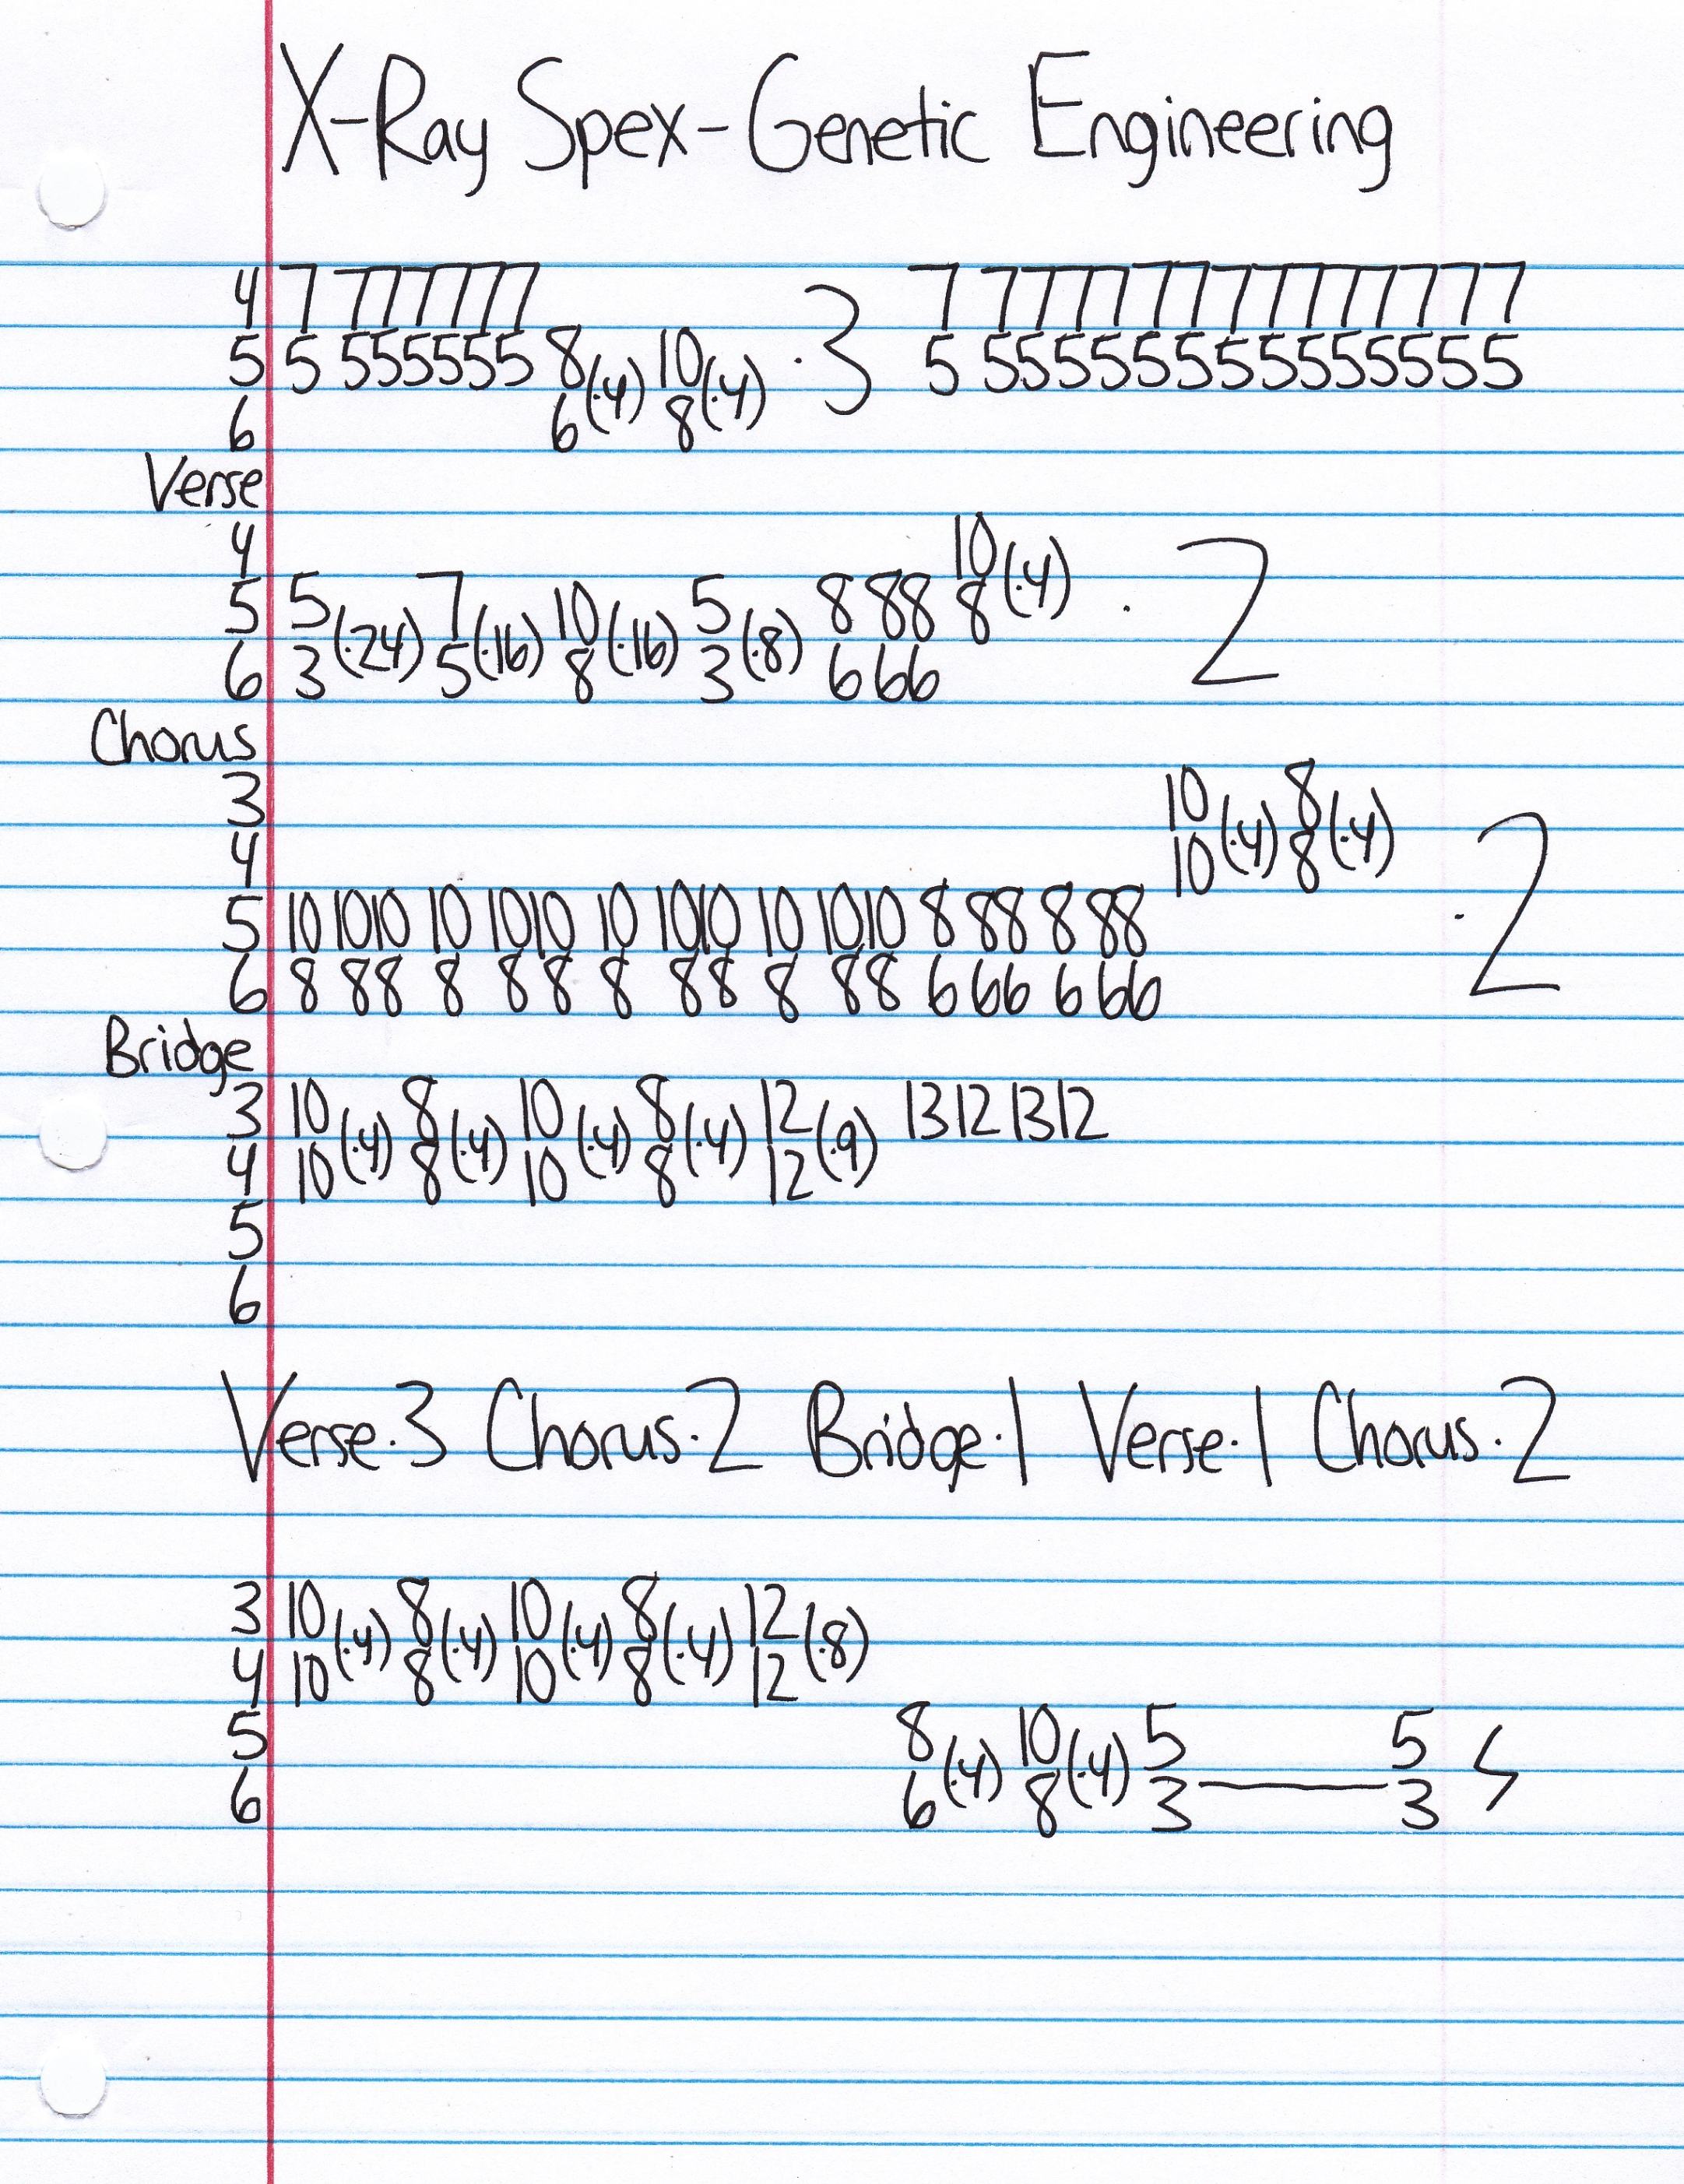 X-Ray Spex-Genetic Engineering
4 7 777777 7 7777777777777
5 5 555555 8(·4) 10(·4) ·3 5 5555555555555
6 6 8
Verse
4 10(·4)
5 5(·24) 7(·16) 10(·16) 5(·8) 8 88 8 ·2
6 3 5 8 3 6 66
Chorus
3 10(·4) 8(·4)
4 10 8
5 10 1010 10 1010 10 1010 10 1010 8 88 8 88 ·2
6 8 88 8 88 8 88 8 88 6 66 6 66
Bridge
3 10(·4) 8(·4) 10(·4) 8(·4) 12(·9) 13 12 13 12
4 10 8 10 8 12
5
6
Verse·3 Chorus·2 Bridge·1 Verse·1 Chorus·2
3 10(·4) 8(·4) 10(·4) 8(·4) 12(·8)
4 10 8 10 8 12
5 8(·4) 10(·4) 5 5
6 6 8 3 3